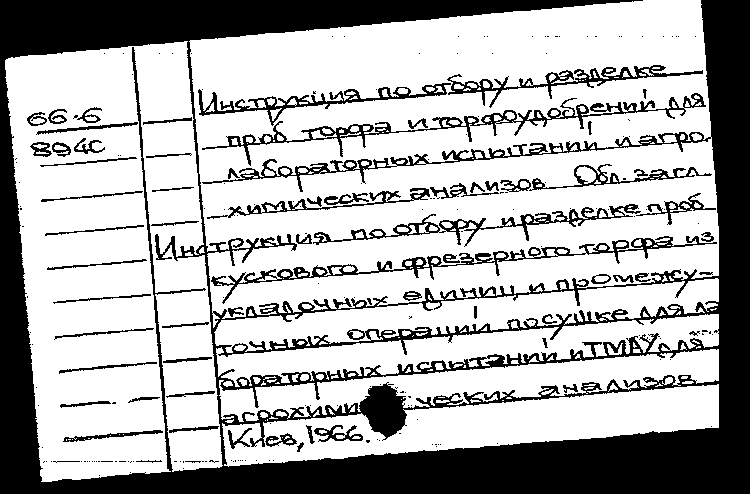 66.6
894С
Инструкция по отбору и разделке
проб торфа и торфоудобрений для
лабораторных испытаний и агро.
химических анализов Обл. загл
Инструкция по отбору и разделке проб
кускового и фрезерного торфа из
укладочных единиц и промежу-
точных операций по сушке для ла
бораторных испытаний и ТМАУ для
агрохими ческих анализов
Киев, 1966.